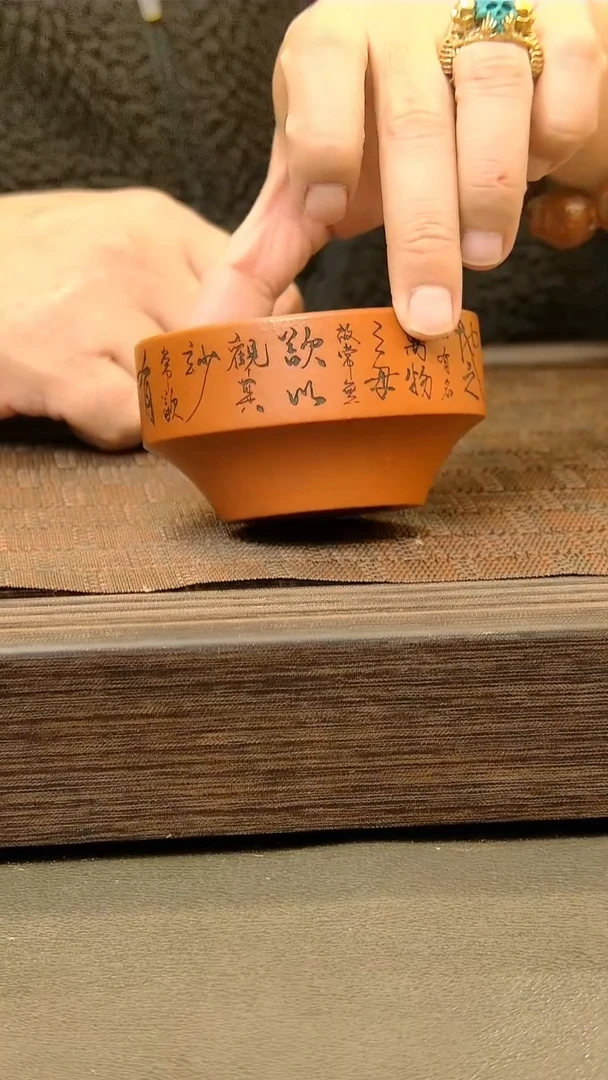 地之
有名
萬物
之母
故常無
欲以
觀其
玅
常欲
有